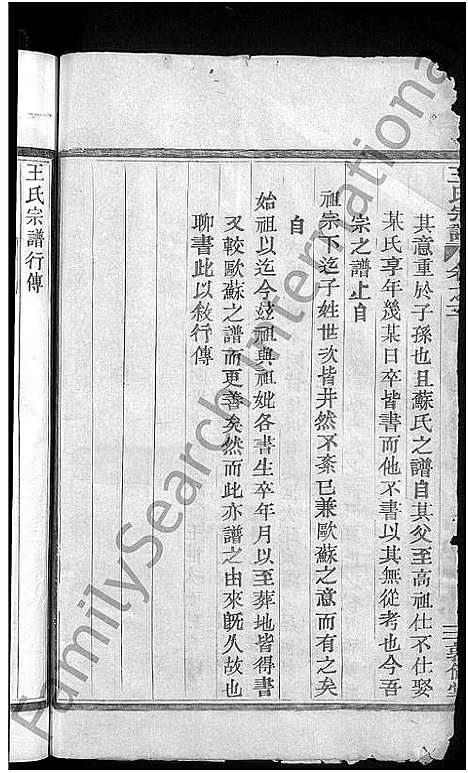 王氏宗譜
其意重於子孫也且蘇氏之譜自其父至高祖仕不仕娶
某氏享年幾某日卒皆書而他不書以其無從考也今吾
宗之譜上自
祖宗下迄子姓世次皆井然不紊已兼歐蘇之意而有之矣
自
始祖以迄今玆祖與祖妣各書生卒年月以至葬地皆得書
又較歐蘇之譜而更善矣然而此亦譜之由來旣久故也
聊書此以敘行傳
王氏宗譜行傳
FamilySearch International